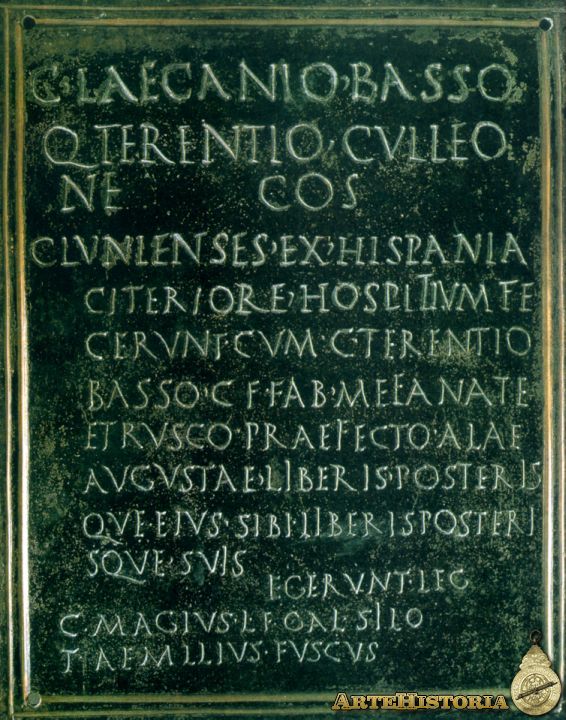 C·LAECANIO·BASSO
Q·TERENTIO·CVLLEO
NE COS
CLVNIENSES·EX·HISPANIA
CITERIORE·HOSPITIVM FE
CERVNT·CVM·C·TERENTIO
BASSO·C·F·FAB·MEFANATE
ETRVSCO·PRAEFECTO·ALAE
AVGVSTAE·LIBERIS·POSTERIS
QVE EIVS·SIBI·LIBERIS·POSTERI
SQVE·SVIS
EGERVNT·LEG
C·MAGIVS·L·F·GAL·SILO
T·AEMILIVS·FVSCVS
ARTEHISTORIA